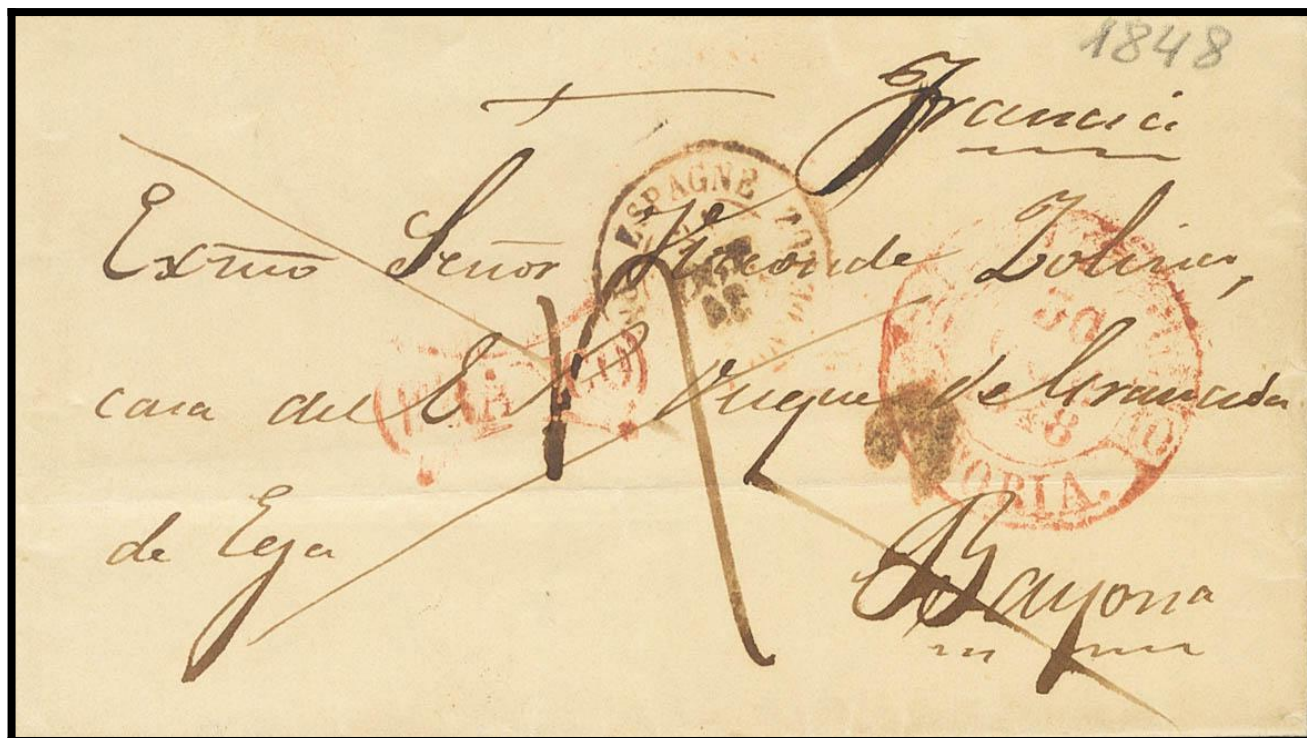 1848
Francia
Exmo Señor Vizconde Zolina,
casa del E Duque de Granada
de Ega
Bayona
ESPAGNE
30
48
ORIA.